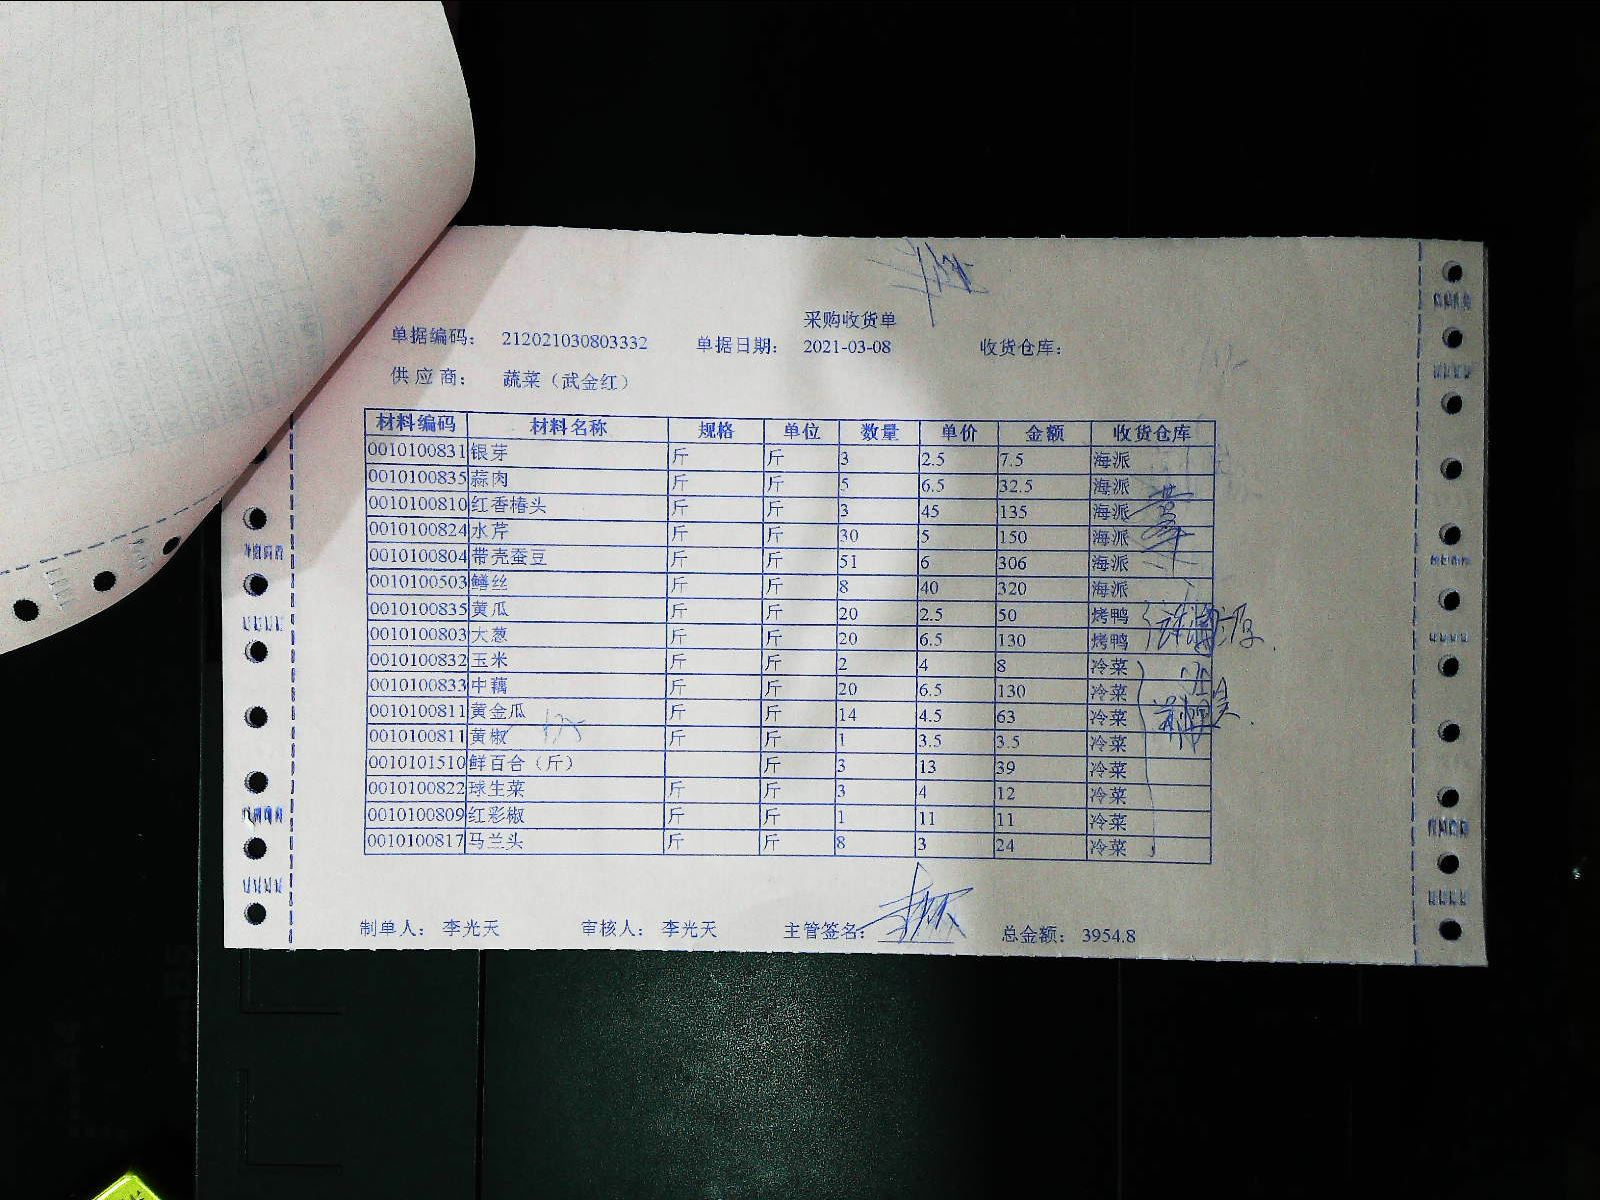 采购收货单
单据编码： 212021030803332 单据日期： 2021-03-08 收货仓库：
供 应 商： 蔬菜（武金红）
材料编码 材料名称 规格 单位 数量 单价 金额 收货仓库
0010100831 银芽 斤 斤 3 2.5 7.5 海派
0010100835 蒜肉 斤 斤 5 6.5 32.5 海派
0010100810 红香椿头 斤 斤 3 45 135 海派
0010100824 水芹 斤 斤 30 5 150 海派
0010100804 带壳蚕豆 斤 斤 51 6 306 海派
0010100503 鳝丝 斤 斤 8 40 320 海派
0010100835 黄瓜 斤 斤 20 2.5 50 烤鸭
0010100803 大葱 斤 斤 20 6.5 130 烤鸭
0010100832 玉米 斤 斤 2 4 8 冷菜
0010100833 中藕 斤 斤 20 6.5 130 冷菜
0010100811 黄金瓜 斤 斤 14 4.5 63 冷菜
0010100811 黄椒 斤 斤 1 3.5 3.5 冷菜
0010101510 鲜百合（斤） 斤 3 13 39 冷菜
0010100822 球生菜 斤 斤 3 4 12 冷菜
0010100809 红彩椒 斤 斤 1 11 11 冷菜
0010100817 马兰头 斤 斤 8 3 24 冷菜
制单人： 李光天 审核人： 李光天 主管签名： 总金额： 3954.8